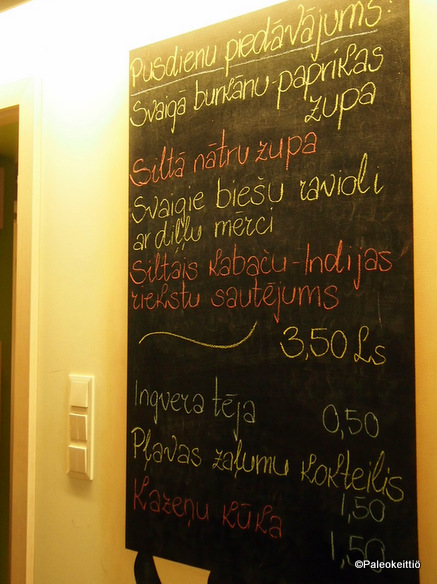 Pusdienu piedāvājums:
Svaigā burkānu-paprikas
zupa
Siltā nātru zupa
Svaigie biešu ravioli
ar diļļu mērci
Siltais kabaču-Indijas
riekstu sautējums
3,50 Ls
Ingvera tēja 0,50
Pļavas zaļumu kokteilis
1,50
Kazeņu kūka
1,50
©Paleokeittiö